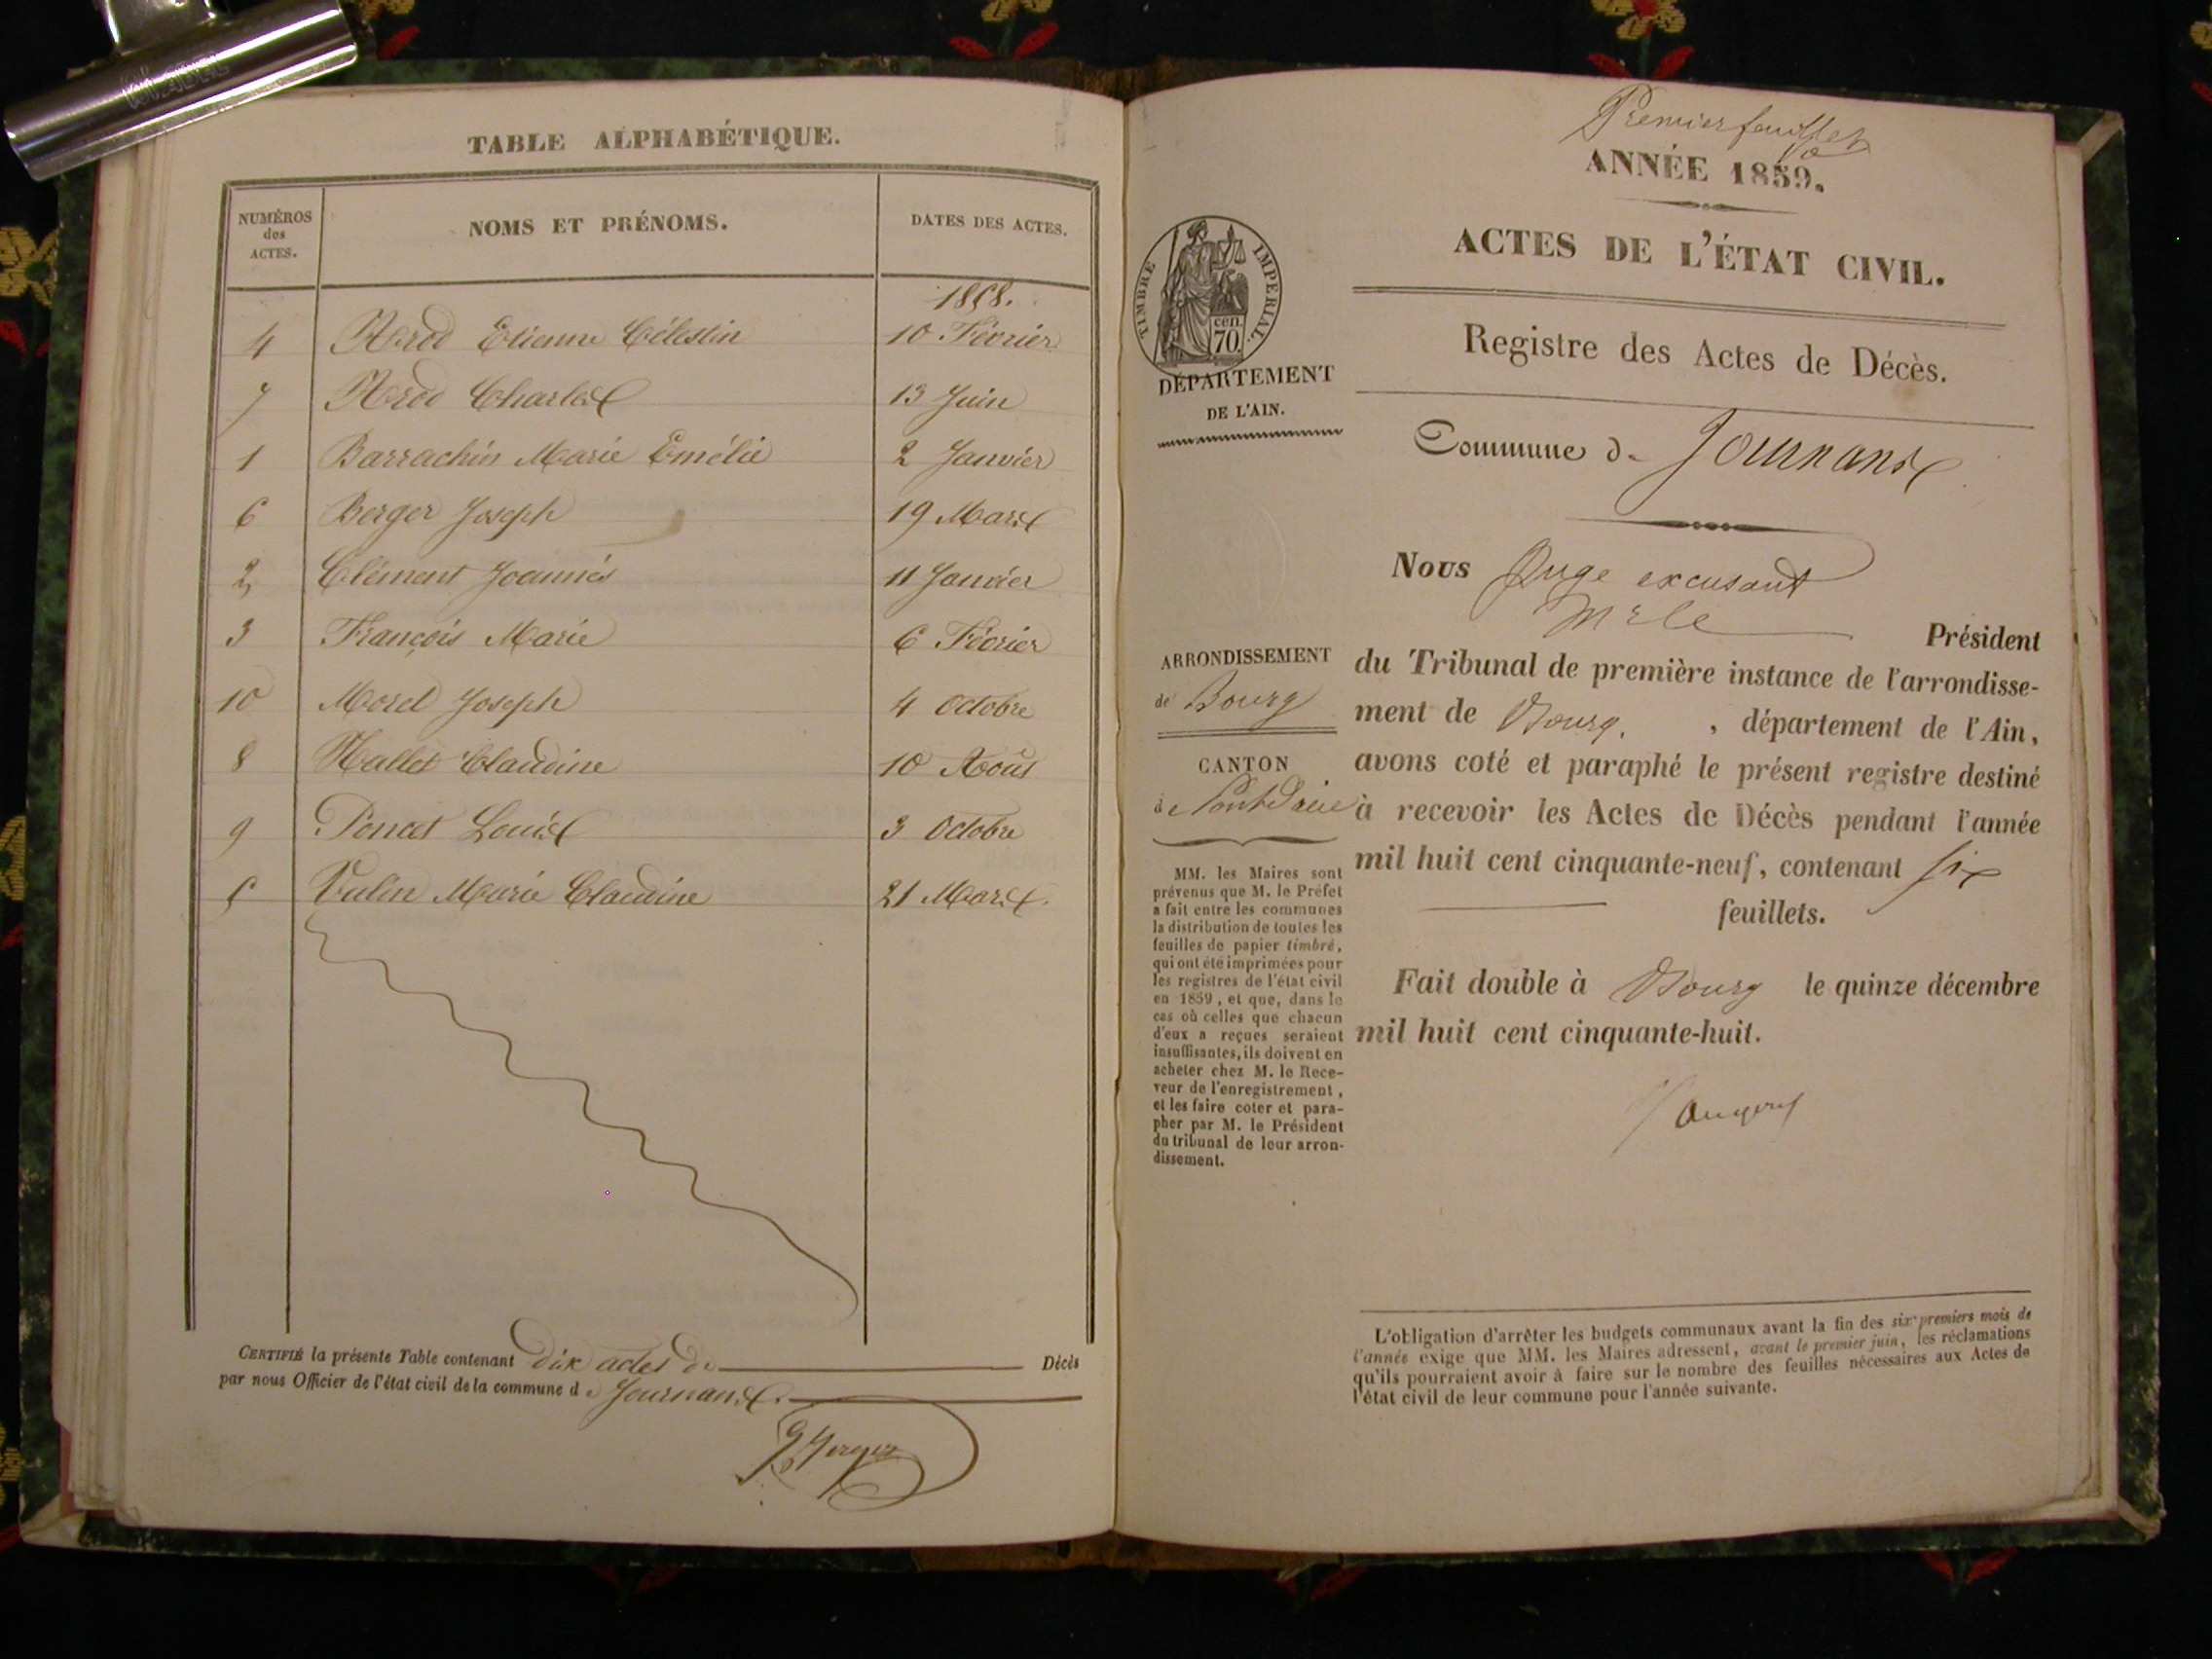 TABLE ALPHABÉTIQUE.
NUMÉROS
des
ACTES.
NOMS ET PRÉNOMS.
DATES DES ACTES.
1858.
4 Etienne Célestin 10 Février
7 Charles 13 Juin
1 Barrachin Marie Emélie 2 Janvier
6 Berger Joseph 19 Mars
2 Clément Joannès 11 Janvier
3 François Marie 6 Février
10 Morel Joseph 4 Octobre
8 Claudine 10 Août
9 Poncet Louis 3 Octobre
5 Vulin Marie Claudine 21 Mars.
CERTIFIÉ la présente Table contenant dix actes de Décès
par nous Officier de l'état civil de la commune de Journans.
Premier feuillet
ANNÉE 1859.
ACTES DE L'ÉTAT CIVIL.
Registre des Actes de Décès.
Commune de Journans
TIMBRE IMPERIAL.
cen.
70.
DÉPARTEMENT
DE L'AIN.
ARRONDISSEMENT
de Bourg
CANTON
MM. les Maires sont
prévenus que M. le Préfet
a fait entre les communes
la distribution de toutes les
feuilles de papier timbré,
qui ont été imprimées pour
les registres de l'état civil
en 1859, et que, dans le
cas où celles que chacun
d'eux a reçues seraient
insuffisantes, ils doivent en
acheter chez M. le Rece-
veur de l'enregistrement,
et les faire coter et para-
pher par M. le Président
du tribunal de leur arron-
dissement.
Nous Juge excusant
Mr le Président
du Tribunal de première instance de l'arrondisse-
ment de Bourg. , département de l'Ain,
avons coté et paraphé le présent registre destiné
à recevoir les Actes de Décès pendant l'année
mil huit cent cinquante-neuf, contenant six
feuillets.
Fait double à Bourg le quinze décembre
mil huit cent cinquante-huit.
L'obligation d'arrêter les budgets communaux avant la fin des six premiers mois de
l'année exige que MM. les Maires adressent, avant le premier juin, les réclamations
qu'ils pourraient avoir à faire sur le nombre des feuilles nécessaires aux Actes de
l'état civil de leur commune pour l'année suivante.